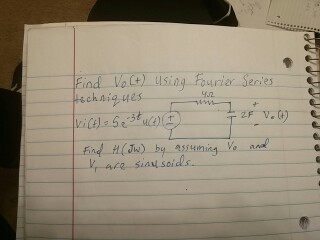 Find Vo(t) using Fourier Series
techniques
4Ω
Vi(t) = 5e^-3t u(t) + - 2F + Vo(t) -
Find H(Jω) by assuming Vo and
Vi are sinusoids.